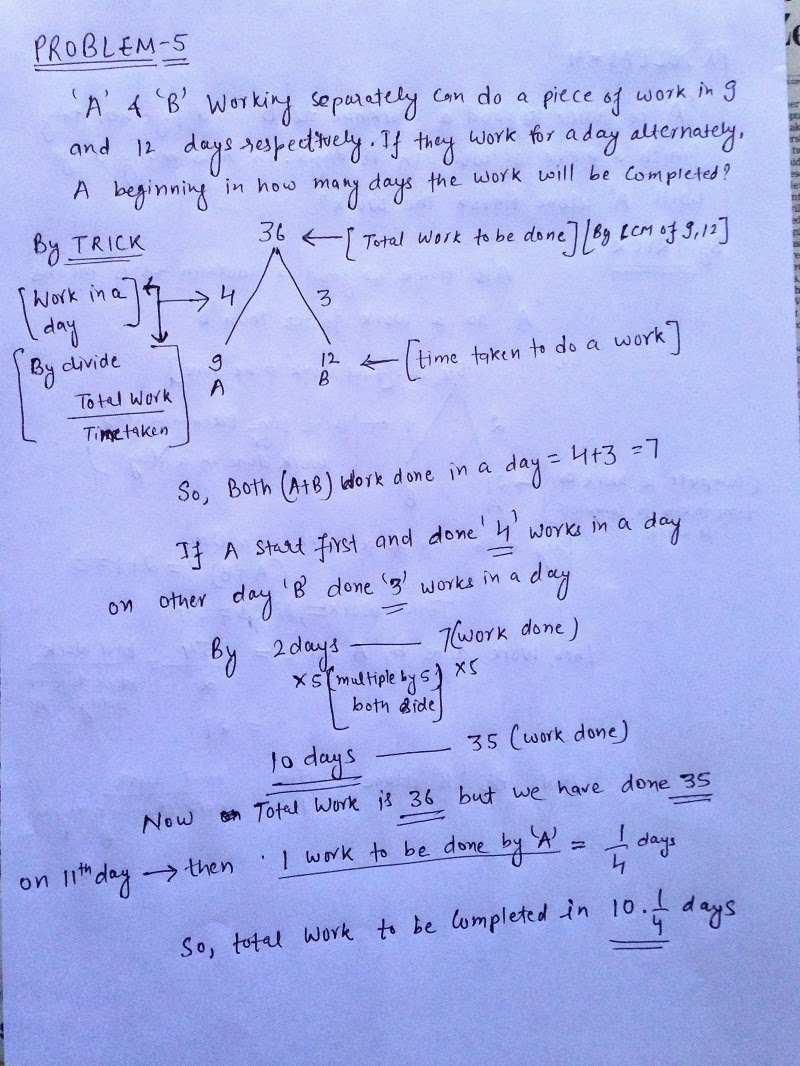 PROBLEM-5
'A' & 'B' Working separately can do a piece of work in 9
and 12 days respectively. If they work for a day alternately,
A beginning in how many days the work will be completed?
By TRICK
36 ← [Total work to be done] [By LCM of 9,12]
[Work in a day] → 4
3
[By divide Total Work / Time taken]
9
A
12
B
← [time taken to do a work]
So, Both (A+B) Work done in a day = 4+3 = 7
If A start first and done '4' works in a day
on other day 'B' done '3' works in a day
By 2 days —— 7 (work done)
×5 [multiple by 5 ×5
both side]
10 days —— 35 (work done)
Now Total Work is 36 but we have done 35
on 11th day → then 1 work to be done by 'A' = 1/4 days
So, total work to be completed in 10.1/4 days